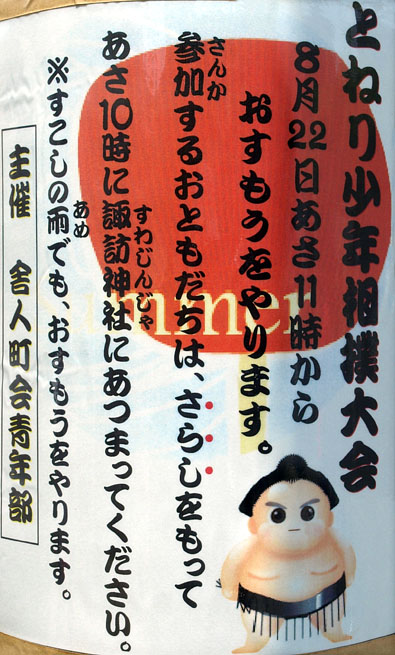 とねり少年相撲大会
8月22日あさ11時から
おすもうをやります。
さんか
参加するおともだちは、さらしをもって
すわじんじゃ
あさ10時に諏訪神社にあつまってください。
あめ
※すこしの雨でも、おすもうをやります。
主催 舎人町会青年部
Summer